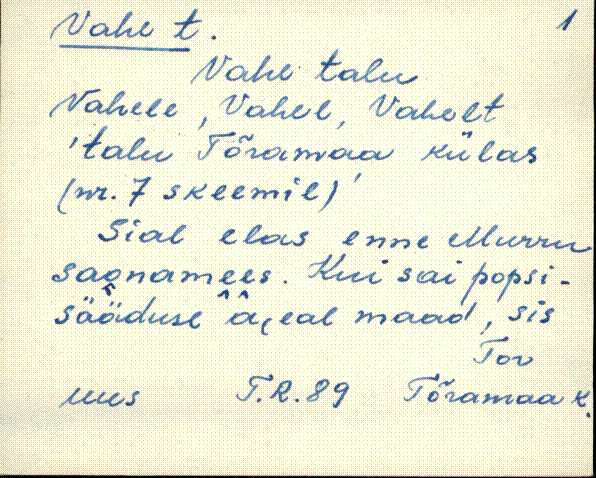 Vahe t. 1
Vahe talu
Vahele, Vahel, Vahelt
'talu Tõramaa külas
(nr. 7 skeemil)'
Sial elas enne Murru
saûnamees. Kui sai popsi-
sääduse eal maad, sis
Tor
uus T.R. 89 Tõramaa k.